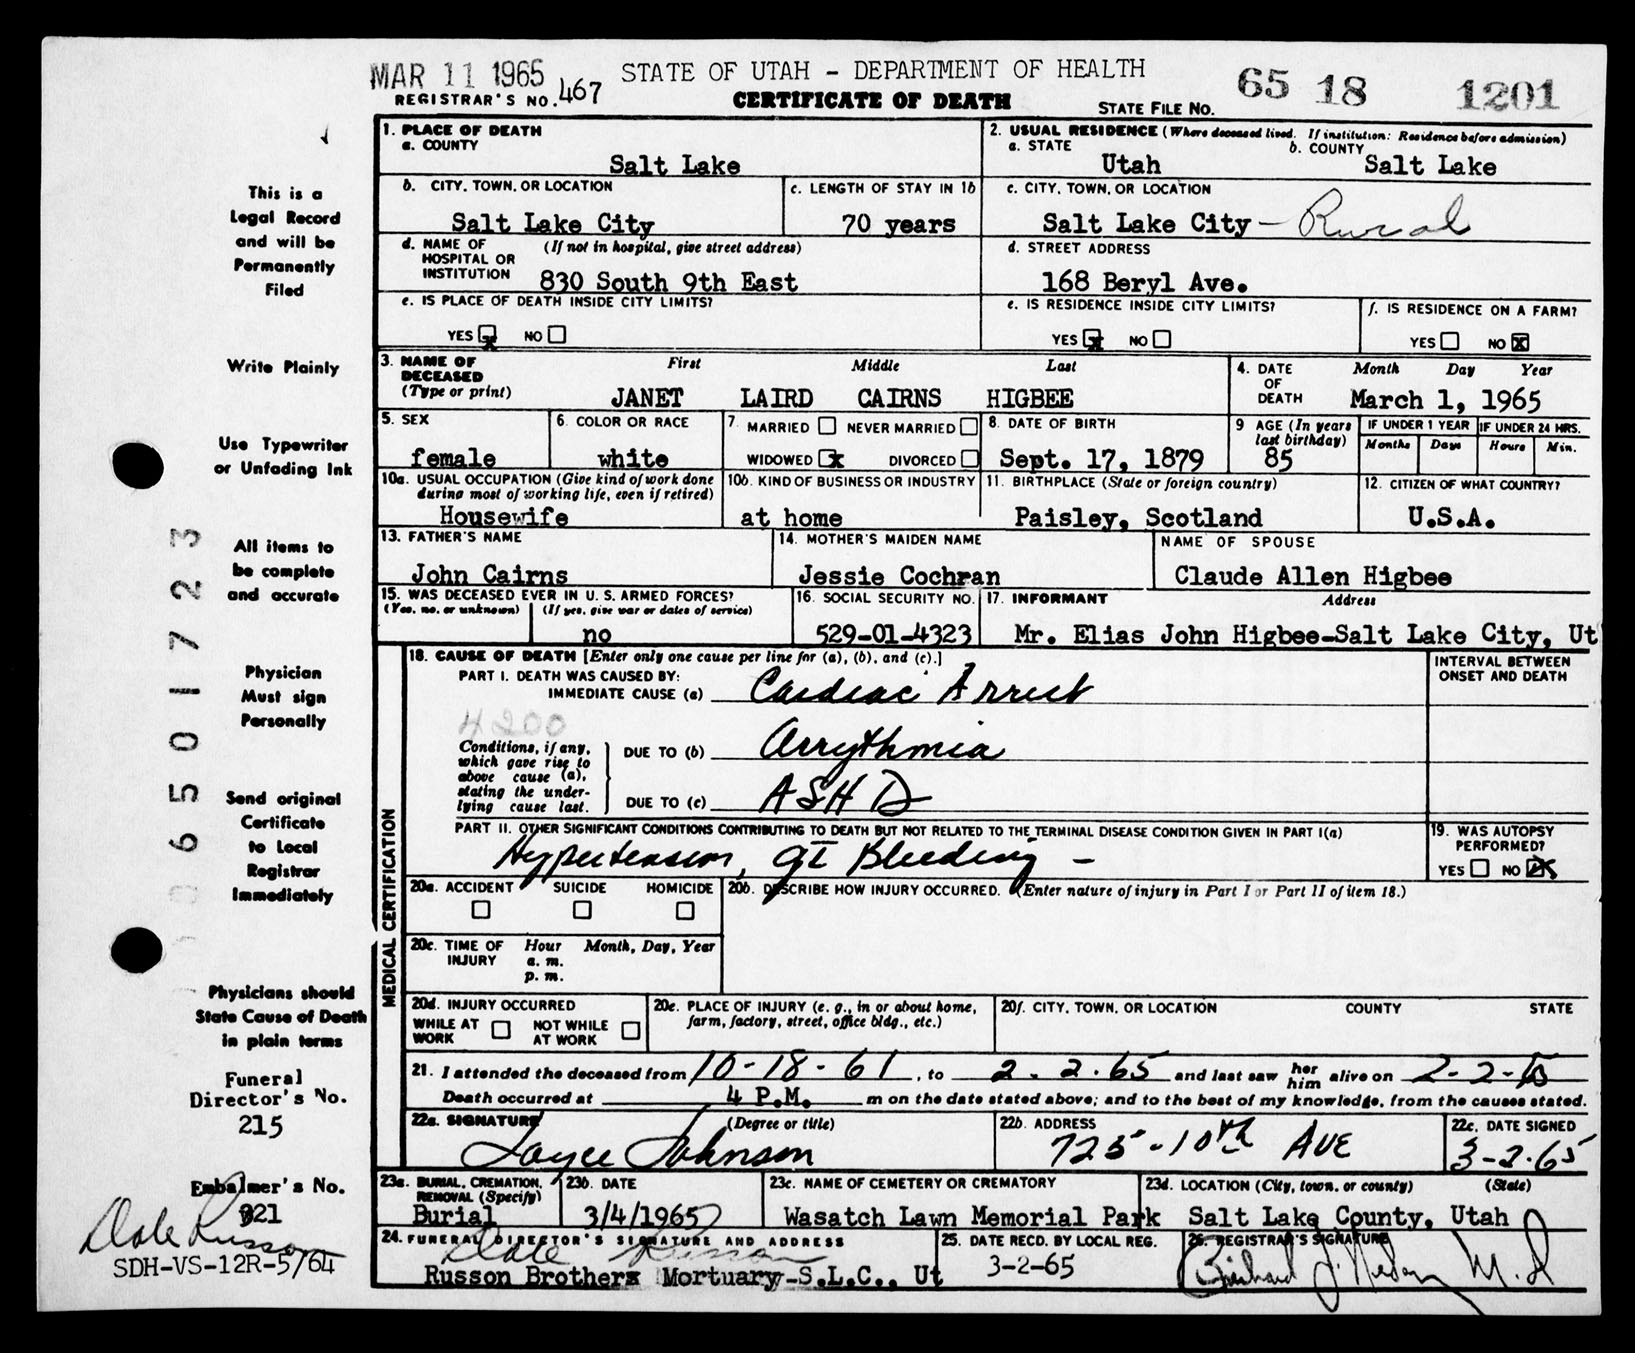 MAR 11 1965
STATE OF UTAH - DEPARTMENT OF HEALTH
65 18 1201
REGISTRAR'S NO. 467
CERTIFICATE OF DEATH
STATE FILE NO.
This is a
Legal Record
and will be
Permanently
Filed
Write Plainly
Use Typewriter
or Unfading Ink
All items to
be complete
and accurate
Physician
Must sign
Personally
Send original
Certificate
to Local
Registrar
Immediately
Physicians should
State Cause of Death
in plain terms
Funeral
Director's No.
215
Embalmer's No.
921
Dale Russon
SDH-VS-12R-5/64
06501723
1. PLACE OF DEATH
a. COUNTY
Salt Lake
2. USUAL RESIDENCE (Where deceased lived. If institution: Residence before admission)
a. STATE
Utah
b. COUNTY
Salt Lake
b. CITY, TOWN, OR LOCATION
Salt Lake City
c. LENGTH OF STAY IN 1b
70 years
c. CITY, TOWN, OR LOCATION
Salt Lake City - Rural
d. NAME OF HOSPITAL OR INSTITUTION (If not in hospital, give street address)
830 South 9th East
d. STREET ADDRESS
168 Beryl Ave.
e. IS PLACE OF DEATH INSIDE CITY LIMITS?
YES x NO
e. IS RESIDENCE INSIDE CITY LIMITS?
YES x NO
f. IS RESIDENCE ON A FARM?
YES NO x
3. NAME OF DECEASED (Type or print)
First Middle Last
JANET LAIRD CAIRNS HIGBEE
4. DATE OF DEATH
Month Day Year
March 1, 1965
5. SEX
female
6. COLOR OR RACE
white
7. MARRIED NEVER MARRIED
WIDOWED x DIVORCED
8. DATE OF BIRTH
Sept. 17, 1879
9 AGE (In years last birthday)
85
IF UNDER 1 YEAR
Months Days
IF UNDER 24 HRS.
Hours Min.
10a. USUAL OCCUPATION (Give kind of work done during most of working life, even if retired)
Housewife
10b. KIND OF BUSINESS OR INDUSTRY
at home
11. BIRTHPLACE (State or foreign country)
Paisley, Scotland
12. CITIZEN OF WHAT COUNTRY?
U.S.A.
13. FATHER'S NAME
John Cairns
14. MOTHER'S MAIDEN NAME
Jessie Cochran
NAME OF SPOUSE
Claude Allen Higbee
15. WAS DECEASED EVER IN U. S. ARMED FORCES?
(Yes, no, or unknown) (If yes, give war or dates of service)
no
16. SOCIAL SECURITY NO.
529-01-4323
17. INFORMANT Address
Mr. Elias John Higbee-Salt Lake City, Ut
MEDICAL CERTIFICATION
18. CAUSE OF DEATH [Enter only one cause per line for (a), (b), and (c).]
INTERVAL BETWEEN ONSET AND DEATH
PART I. DEATH WAS CAUSED BY:
IMMEDIATE CAUSE (a) Cardiac Arrest
4200
Conditions, if any, which gave rise to above cause (a), stating the underlying cause last.
DUE TO (b) Arrythmia
DUE TO (c) ASHD
PART II. OTHER SIGNIFICANT CONDITIONS CONTRIBUTING TO DEATH BUT NOT RELATED TO THE TERMINAL DISEASE CONDITION GIVEN IN PART I(a)
Hypertension, GI Bleeding -
19. WAS AUTOPSY PERFORMED?
YES NO x
20a. ACCIDENT SUICIDE HOMICIDE
20b. DESCRIBE HOW INJURY OCCURRED. (Enter nature of injury in Part I or Part II of item 18.)
20c. TIME OF INJURY Hour Month, Day, Year
a. m.
p. m.
20d. INJURY OCCURRED
WHILE AT WORK NOT WHILE AT WORK
20e. PLACE OF INJURY (e. g., in or about home, farm, factory, street, office bldg., etc.)
20f. CITY, TOWN, OR LOCATION COUNTY STATE
21. I attended the deceased from 10-18-61, to 2-2-65 and last saw her him alive on 2-2-65
Death occurred at 4 P.M. m on the date stated above; and to the best of my knowledge, from the causes stated.
22a. SIGNATURE (Degree or title)
Joyce Johnson
22b. ADDRESS
725-10th AVE
22c. DATE SIGNED
3-2-65
23a. BURIAL, CREMATION, REMOVAL (Specify)
Burial
23b. DATE
3/4/1965
23c. NAME OF CEMETERY OR CREMATORY
Wasatch Lawn Memorial Park
23d. LOCATION (City, town, or county) (State)
Salt Lake County, Utah
24. FUNERAL DIRECTOR'S SIGNATURE AND ADDRESS
Dale Russon
Russon Brothers Mortuary-S.L.C., Ut
25. DATE RECD. BY LOCAL REG.
3-2-65
26. REGISTRAR'S SIGNATURE